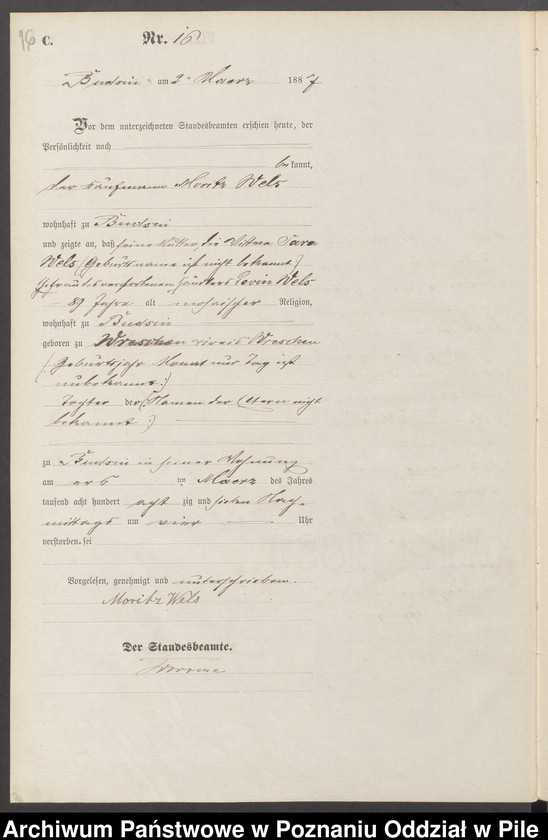 16
C. Nr. 16
Budsin am 2 Maerz 1887
Vor dem unterzeichneten Standesbeamten erschien heute, der
Persönlichkeit nach
be kannt,
der Kaufmann Moritz Wels
wohnhaft zu Budsin
und zeigte an, daß seine Mutter, die Wittwe Sara
Wels (Geburtsname ist nicht bekannt)
Ehefrau des verstorbenen Levin Wels
89 Jahre alt mosaischer Religion,
wohnhaft zu Budsin
geboren zu Wreschen Kreis Wreschen
(Geburtsjahr Monat und Tag ist
unbekannt:)
Tochter der (Namen der Eltern nicht
bekannt:)
zu Budsin in seiner Wohnung
am ten Maerz des Jahres
tausend acht hundert acht zig und sieben Nach-
mittags um vier Uhr
verstorben sei
Vorgelesen, genehmigt und unterschrieben.
Moritz Wels
Der Standesbeamte.
Archiwum Państwowe w Poznaniu Oddział w Pile